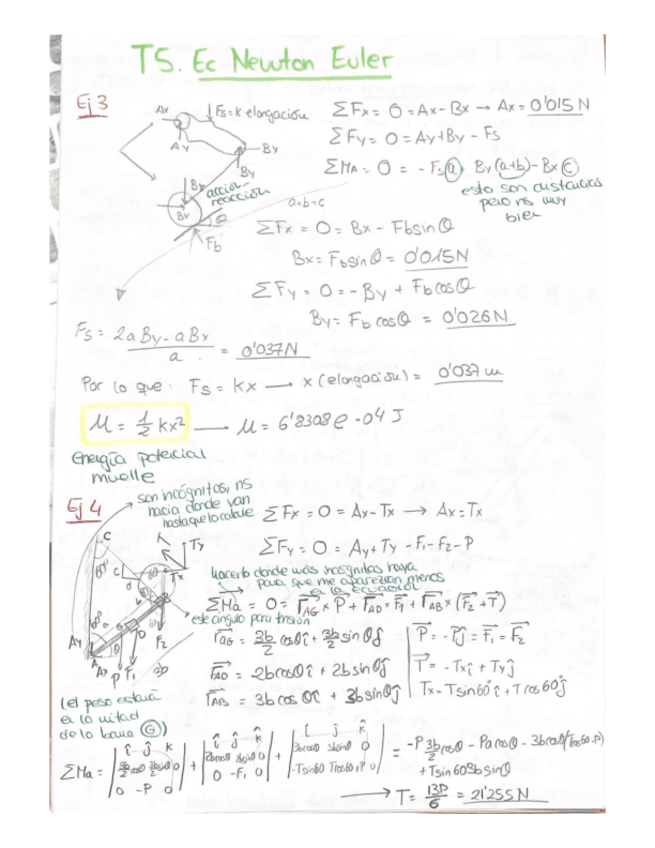 T5. Ec Newton Euler
Ej 3
Ax
Fs=k·elongación
Ay
Bx
By
By
Bx
acción-
reacción
θ
Fb
a=b=c
ΣFx = 0 = Ax - Bx → Ax = 0'015 N
ΣFy = 0 = Ay + By - Fs
ΣMA = 0 = - Fs(a) + By(a+b) - Bx(c)
esto son distancias
pero no muy
bien
ΣFx = 0 = Bx - Fb sin θ
Bx = Fb sin θ = 0'015 N
ΣFy = 0 = -By + Fb cos θ
By = Fb cos θ = 0'026 N
Fs = 2a By - a Bx / a = 0'037 N
Por lo que: Fs = kx → x (elongación) = 0'037 m
U = 1/2 kx² → U = 6'8308e-04 J
energía potencial
muelle
Ej 4
son incógnitas, ns
hacia donde van
hasta que lo calcule
ΣFx = 0 = Ax - Tx → Ax = Tx
ΣFy = 0 = Ay + Ty - F1 - F2 - P
hacerlo donde más incógnitas haya
para que me aparezcan menos
en la ecuación
ΣMa = 0 = rAG × P + rAD × F1 + rAB × (F2 + T)
este ángulo para tensión
rAG = 3b/2 cos θ î + 3b/2 sin θ ĵ
rAD = 2b cos θ î + 2b sin θ ĵ
rAB = 3b cos θ î + 3b sin θ ĵ
P = -Pĵ = F1 = F2
T = -Tx î + Ty ĵ
Tx - T sin 60 î + T cos 60 ĵ
C
Ty
Tx
B
G
D
F2
Ay
A
Ax
P
F1
(el peso estará
en la mitad
de la barra (G))
ΣMa = | î ĵ k̂ 3b/2 cosθ 3b/2 sinθ 0 0 -P 0 | + | î ĵ k̂ 2b cosθ 2b sinθ 0 0 -F1 0 | + | î ĵ k̂ 3b cosθ 3b sinθ 0 -T sin60 T cos60+P 0 | = -P 3b/2 cosθ - Pa cosθ - 3b cosθ (T cos60 - P)
+ T sin 60 3b sin θ
→ T = 13P/6 = 21'255 N